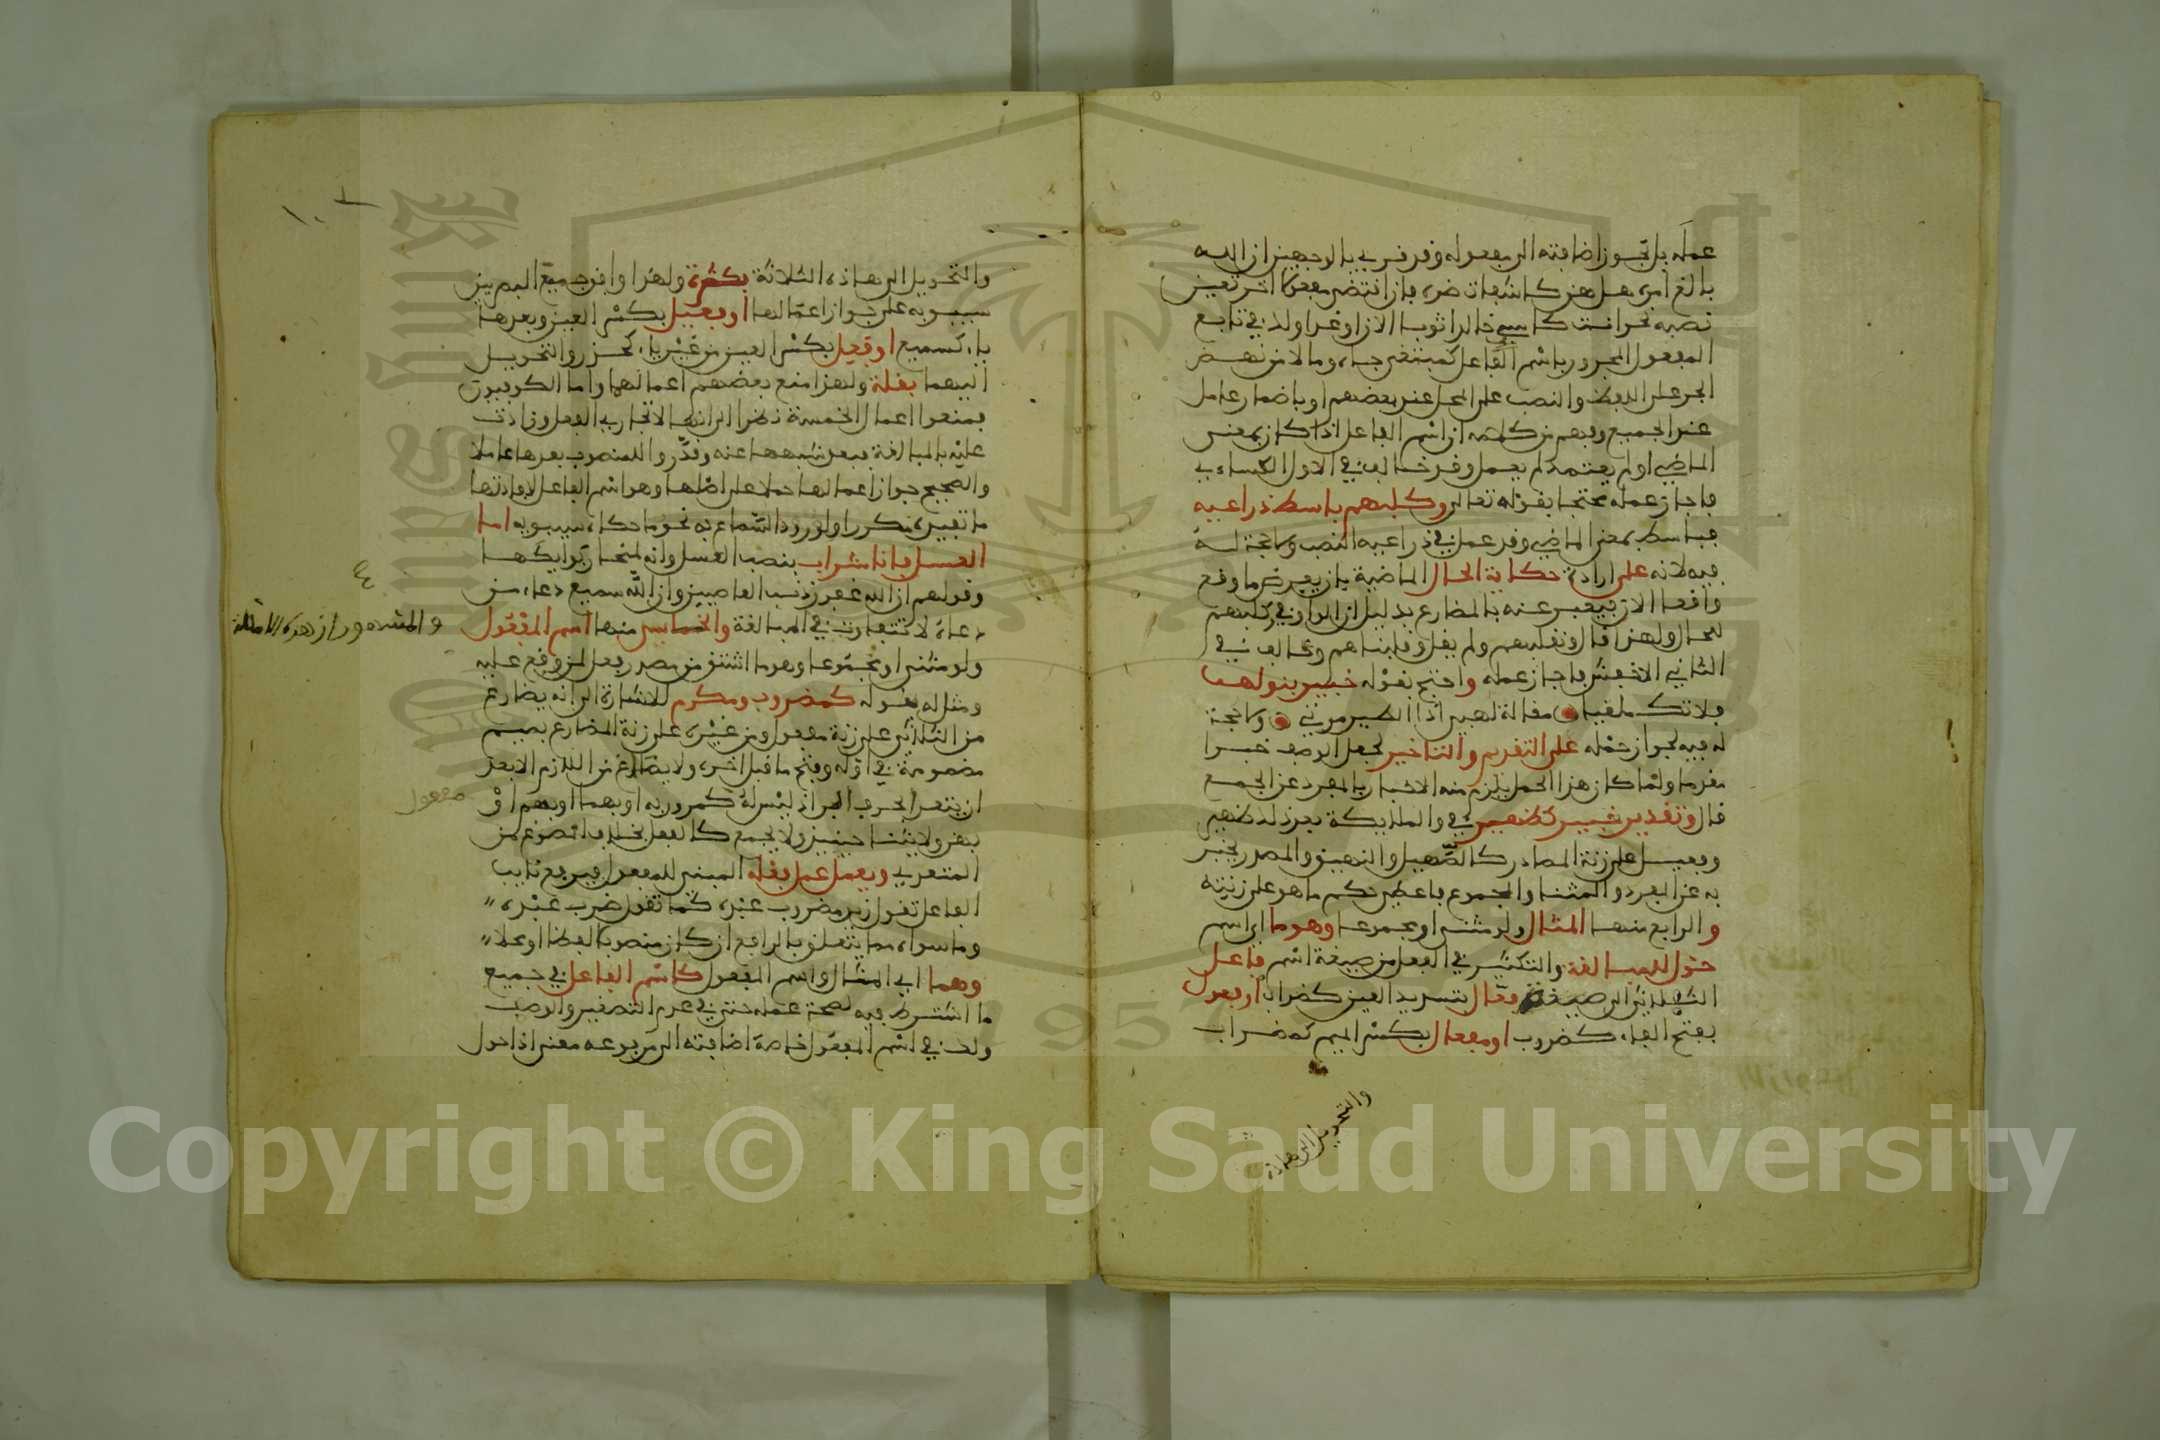 عمله بل تجوز اضافته الى مفعوله وقد قرئ بالوجهين ان الله
بالغ امره هل هن كاشفات ضره فان اقتضى مفعولا اخر تعين
نصبه نحو انت كاسي خالد ثوبا الان او غدا ولك في تابع
المفعول المجرور باسم الفاعل كمبتغي جاه ومالا من نهض
الجر على اللفظ والنصب على المحل عند بعضهم او باضمار عامل
عند الجميع وفهم من كلامه ان اسم الفاعل اذا كان بمعنى
الماضي او لم يعتمد لم يعمل وقد خالف في الاول الكساءي
فاجاز عمله محتجا بقوله تعالى وكلبهم باسط ذراعيه
فباسط بمعنى الماضي وقد عمل في ذراعيه النصب ولا حجة له
فيه لانه على ارادة حكاية الحال الماضية بان يفرض ما وقع
واقعا الان فيعبر عنه بالمضارع بدليل ان الواو في وكلبهم
للحال ولهذا قال ونقلبهم ولم يقل وقلبناهم وخالف في
الثاني الاخفش فاجاز عمله واحتج بقوله خبير بنو لهب
فلا تك ملغيا مقالة لهبي اذا الطير مرتي ولا حجة
له فيه لجواز حمله على التقديم والتاخير بجعل الوصف خبرا
مقدما ولما كان هذا الحمل يلزم منه الاخبار بالمفرد عن الجمع
قال وتقدير خبير كظهير في والملايكة بعد ذلك ظهير
وفعيل على زنة المصادر كالصهيل والنهيق والمصدر يخبر
به عن المفرد والمثنا والمجموع فاعطي حكم ما هو على زنته
والرابع منها المثال ولو مثنى او مجموعا وهو ما اي اسم
حول للمبالغة والتكثير في الفعل من صيغة اسم فاعل
الثلاثي الى صيغة فعال بتشديد العين كضراب او فعول
بفتح الفاء كضروب او مفعال بكسر الميم كمضراب
والتحويل الى هذه
والتحويل الى هاذه الثلاثة بكثرة ولهذا وافق جميع البصريين
سيبويه على جواز اعمالها او فعيل بكسر العين وبعدها
ياء كسميع او فعل بكسر العين من غير ياء كحذر والتحويل
اليهما بقلة ولهذا منع بعضهم اعمالهما واما الكوفيون
فمنعوا اعمال الخمسة نظرا الى انها لا تجاري الفعل وزادت
عليه بالمبالغة فبعد شبهها عنه وقدروا للمنصوب بعدها عاملا
والصحيح جواز اعمالها حملا على اصلها وهو اسم الفاعل لافادتها
ما تفيده مكررا ولورود السماع به نحو ما حكاه سيبويه اما
العسل فانا شراب بنصب العسل وانه لمنحار بوايكها
وقولهم ان الله غفور ذنب العاصين وان الله سميع دعاء من
دعاه لا تتفاوت في المبالغة والخامس منها اسم المفعول
والمشهور ان هذه الامثلة
ولو مثنى او مجموعا وهو ما اشتق من مصدر فعل لمن وقع عليه
ومثل له بقوله كمضروب ومكرم للاشارة الى انه يصاغ
من الثلاثي على زنة مفعول ومن غيره على زنة المضارع بميم
مضمومة في اوله وفتح ما قبل اخره ولا يصاغ من اللازم الا بعد
ان يتعدى بحرف الجر اذ ليس له كمرور به او بهما او بهم او
مفعول
بهن ولا يثنا حينيذ ولا يجمع كالفعل بخلاف المصوغ من
المتعدي ويعمل عمل فعله المبني للمفعول فيرفع نايب
الفاعل تقول زيد مضروب عبده كما تقول ضرب عبده
وما سواه مما يتعلق بالرافع ان كان منصوبا لفظا او محلا
وهما اي المثال واسم المفعول كاسم الفاعل في جميع
ما اشترط فيه لصحة عمله حتى في عدم التصغير والوصف
ولك في اسم المفعول خاصة اضافته الى مرفوعه معنى اذا حول